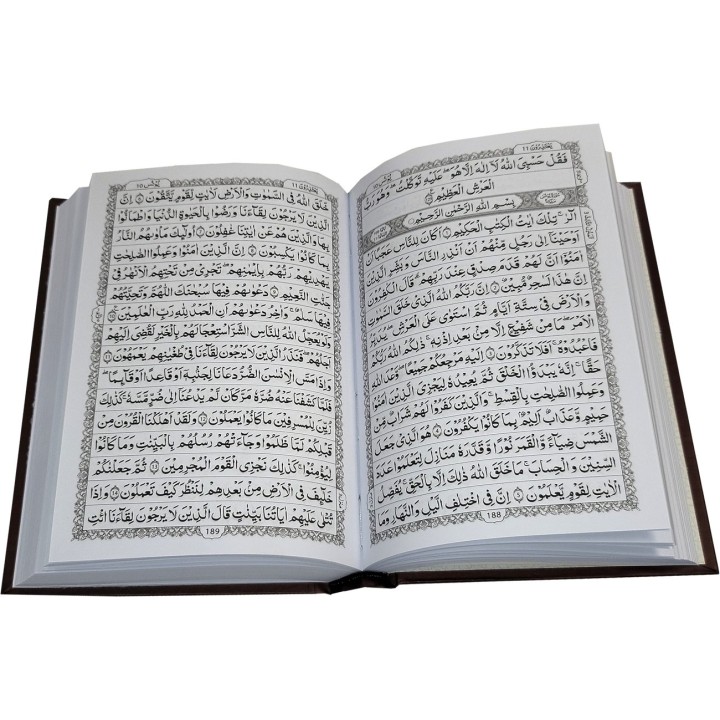 يعتذرون ١١
يونس ١٠
فَقُلْ حَسْبِیَ اللّٰهُ لَاۤ اِلٰهَ اِلَّا هُوَ ؕ عَلَیْهِ تَوَكَّلْتُ وَهُوَ رَبُّ
الْعَرْشِ الْعَظِیْمِ
بِسْمِ اللّٰهِ الرَّحْمٰنِ الرَّحِیْمِ
الٓرٰ تِلْكَ اٰیٰتُ الْكِتٰبِ الْحَكِیْمِ ۝۱ اَكَانَ لِلنَّاسِ عَجَبًا اَنْ
اَوْحَیْنَاۤ اِلٰی رَجُلٍ مِّنْهُمْ اَنْ اَنْذِرِ النَّاسَ وَبَشِّرِ الَّذِیْنَ
اٰمَنُوْۤا اَنَّ لَهُمْ قَدَمَ صِدْقٍ عِنْدَ رَبِّهِمْ ؔؕ قَالَ الْكٰفِرُوْنَ
اِنَّ هٰذَا لَسٰحِرٌ مُّبِیْنٌ ۝۲ اِنَّ رَبَّكُمُ اللّٰهُ الَّذِیْ خَلَقَ السَّمٰوٰتِ
وَالْاَرْضَ فِیْ سِتَّةِ اَیَّامٍ ثُمَّ اسْتَوٰی عَلَی الْعَرْشِ یُدَبِّرُ
الْاَمْرَ ؕ مَا مِنْ شَفِیْعٍ اِلَّا مِنْۢ بَعْدِ اِذْنِهٖ ؕ ذٰلِكُمُ اللّٰهُ رَبُّكُمْ
فَاعْبُدُوْهُ ؕ اَفَلَا تَذَكَّرُوْنَ ۝۳ اِلَیْهِ مَرْجِعُكُمْ جَمِیْعًا ؕ وَعْدَ اللّٰهِ
حَقًّا ؕ اِنَّهٗ یَبْدَؤُا الْخَلْقَ ثُمَّ یُعِیْدُهٗ لِیَجْزِیَ الَّذِیْنَ اٰمَنُوْا
وَعَمِلُوا الصّٰلِحٰتِ بِالْقِسْطِ ؕ وَالَّذِیْنَ كَفَرُوْا لَهُمْ شَرَابٌ مِّنْ
حَمِیْمٍ وَّعَذَابٌ اَلِیْمٌۢ بِمَا كَانُوْا یَكْفُرُوْنَ ۝۴ هُوَ الَّذِیْ جَعَلَ
الشَّمْسَ ضِیَآءً وَّالْقَمَرَ نُوْرًا وَّقَدَّرَهٗ مَنَازِلَ لِتَعْلَمُوْا عَدَدَ
السِّنِیْنَ وَالْحِسَابَ ؕ مَا خَلَقَ اللّٰهُ ذٰلِكَ اِلَّا بِالْحَقِّ ۚ یُفَصِّلُ
الْاٰیٰتِ لِقَوْمٍ یَّعْلَمُوْنَ ۝۵ اِنَّ فِی اخْتِلَافِ الَّیْلِ وَالنَّهَارِ وَمَا
188
يعتذرون ١١
يونس ١٠
خَلَقَ اللّٰهُ فِی السَّمٰوٰتِ وَالْاَرْضِ لَاٰیٰتٍ لِّقَوْمٍ یَّتَّقُوْنَ ۝۶ اِنَّ
الَّذِیْنَ لَا یَرْجُوْنَ لِقَآءَنَا وَرَضُوْا بِالْحَیٰوةِ الدُّنْیَا وَاطْمَاَنُّوْا
بِهَا وَالَّذِیْنَ هُمْ عَنْ اٰیٰتِنَا غٰفِلُوْنَ ۝۷ اُولٰٓىِٕكَ مَاْوٰىهُمُ النَّارُ
بِمَا كَانُوْا یَكْسِبُوْنَ ۝۸ اِنَّ الَّذِیْنَ اٰمَنُوْا وَعَمِلُوا الصّٰلِحٰتِ
یَهْدِیْهِمْ رَبُّهُمْ بِاِیْمَانِهِمْ ۚ تَجْرِیْ مِنْ تَحْتِهِمُ الْاَنْهٰرُ فِیْ
جَنّٰتِ النَّعِیْمِ ۝۹ دَعْوٰىهُمْ فِیْهَا سُبْحٰنَكَ اللّٰهُمَّ وَتَحِیَّتُهُمْ
فِیْهَا سَلٰمٌ ۚ وَاٰخِرُ دَعْوٰىهُمْ اَنِ الْحَمْدُ لِلّٰهِ رَبِّ الْعٰلَمِیْنَ ۝۱۰
وَلَوْ یُعَجِّلُ اللّٰهُ لِلنَّاسِ الشَّرَّ اسْتِعْجَالَهُمْ بِالْخَیْرِ لَقُضِیَ اِلَیْهِمْ
اَجَلُهُمْ ؕ فَنَذَرُ الَّذِیْنَ لَا یَرْجُوْنَ لِقَآءَنَا فِیْ طُغْیَانِهِمْ یَعْمَهُوْنَ ۝۱۱
وَاِذَا مَسَّ الْاِنْسَانَ الضُّرُّ دَعَانَا لِجَنْۢبِهٖۤ اَوْ قَاعِدًا اَوْ قَآىِٕمًا ۚ
فَلَمَّا كَشَفْنَا عَنْهُ ضُرَّهٗ مَرَّ كَاَنْ لَّمْ یَدْعُنَاۤ اِلٰی ضُرٍّ مَّسَّهٗ ؕ كَذٰلِكَ
زُیِّنَ لِلْمُسْرِفِیْنَ مَا كَانُوْا یَعْمَلُوْنَ ۝۱۲ وَلَقَدْ اَهْلَكْنَا الْقُرُوْنَ مِنْ
قَبْلِكُمْ لَمَّا ظَلَمُوْا ۙ وَجَآءَتْهُمْ رُسُلُهُمْ بِالْبَیِّنٰتِ وَمَا كَانُوْا
لِیُؤْمِنُوْا ؕ كَذٰلِكَ نَجْزِی الْقَوْمَ الْمُجْرِمِیْنَ ۝۱۳ ثُمَّ جَعَلْنٰكُمْ
خَلٰٓىِٕفَ فِی الْاَرْضِ مِنْۢ بَعْدِهِمْ لِنَنْظُرَ كَیْفَ تَعْمَلُوْنَ ۝۱۴ وَاِذَا
تُتْلٰی عَلَیْهِمْ اٰیَاتُنَا بَیِّنٰتٍ ۙ قَالَ الَّذِیْنَ لَا یَرْجُوْنَ لِقَآءَنَا ائْتِ
189